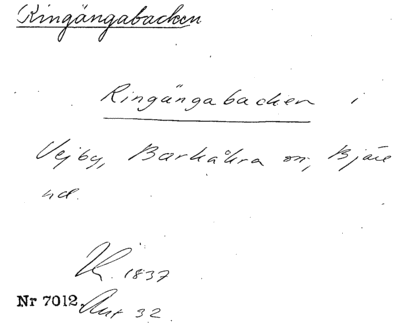 Ringängabacken
Ringängabacken i
Vejby, Barkåkra sn, Bjäre
hd.
1837
Nr 7012. Ant 32.